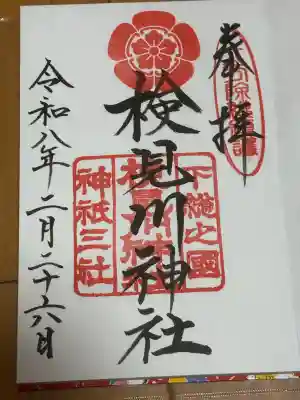 奉拝
検見川神社
下総之國
神祇三社
令和八年二月二十六日